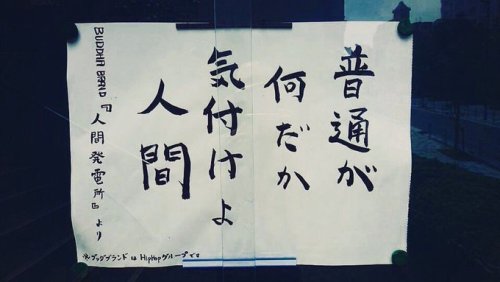 普通が
何だか
気付けよ
人間
BUDDHA BRAND『人間発電所』より
※ブッダブランドはHipHopグループです